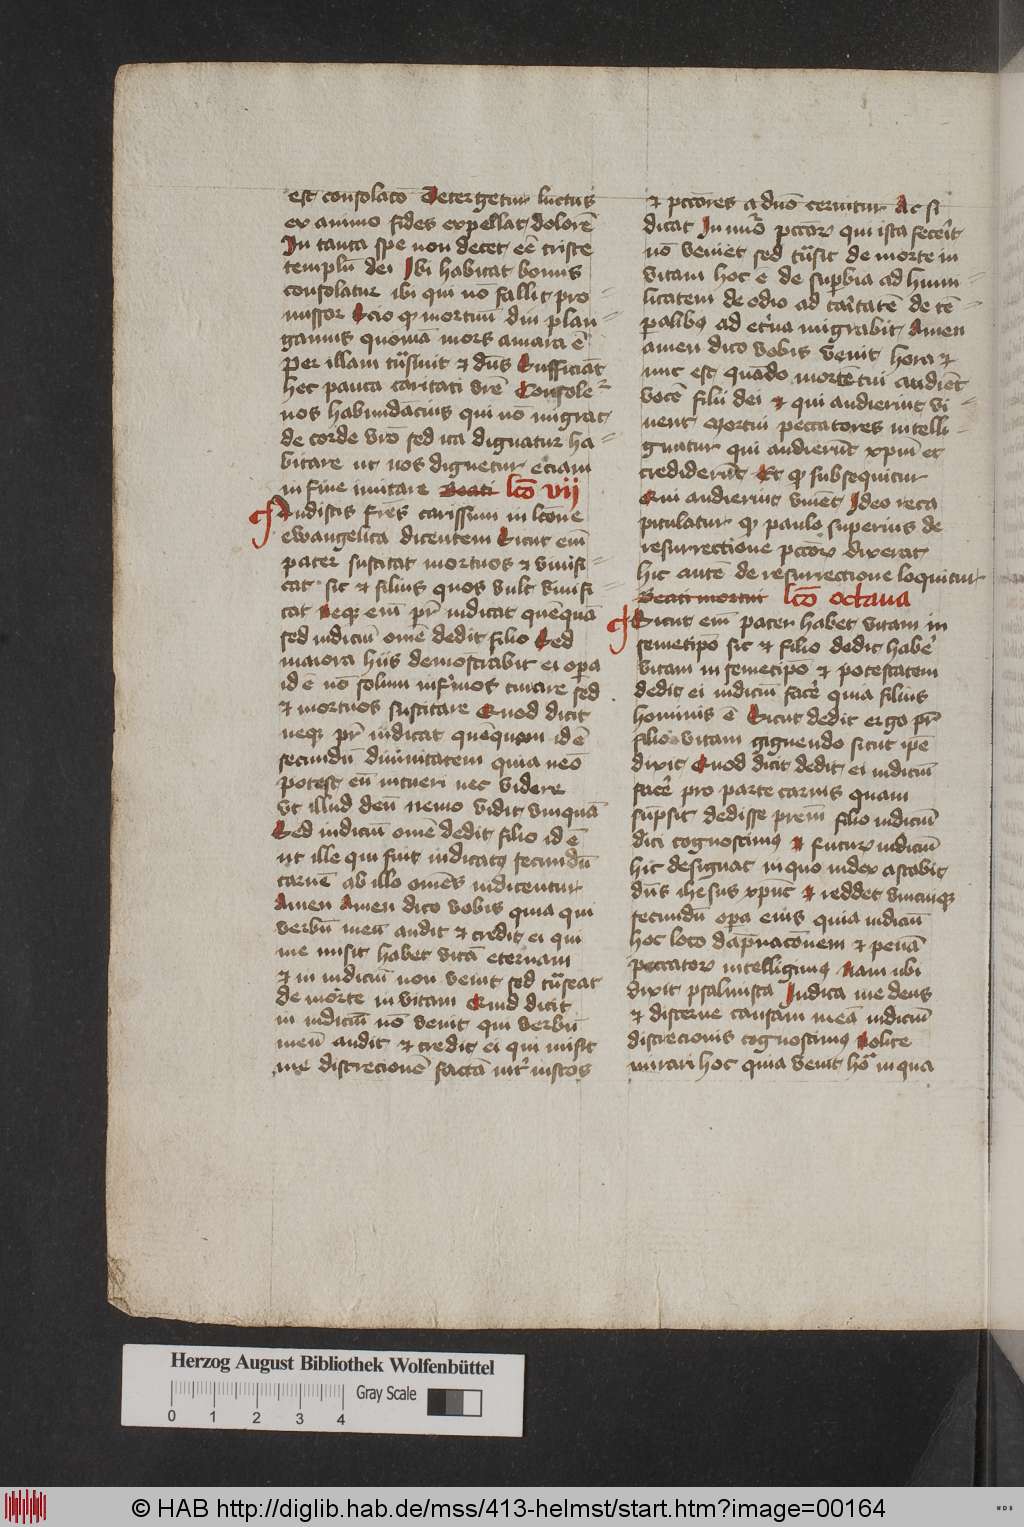 est consolaco Detergetur luctus
ex animo fides expellat dolorē
In tanta spe non decet eē triste
templū dei Ibi habitat bonus
consolatur ibi qui nō fallit pro
missor Scio qꝫ mortuū diu plan
gamus quoniā mors amara ē
per illam tn̄sīuit ⁊ dn̄s Sufficiāt
hec pauca caritati vr̄e Console
nos habundācius qui nō migrat
de corde vr̄o sed ita dignatur ha
bitare ut nos dignetur etiam
in fine imitare Beati lcō vij
Audistis fr̄es carissimi in lcōne
ewangelica dicentem Sicut em̄
pater suscitat mortuos ⁊ vivifi
cat sic ⁊ filius quos vult vivifi
cat Neqꝫ em̄ pr̄ iudicat quēquā
sed iudiciū omē dedit filio Sed
maiora hiis demōstrabit ei opa
id ē nō solum infirmos curare sed
⁊ mortuos suscitare Quod dicit
neqꝫ pr̄ iudicat quequam id ē
secundū divinitatem quia neō
potest eū intueri nec videre
vt illud deū nemo vidit vnquā
Sed iudiciū omē dedit filio id ē
ut ille qui fuit iudicatꝰ secundū
carnē ab illo omēs iudicentur
Amen Amen dico vobis quia qui
verbū meū audit ⁊ credit ei qui
me misit habet vitā eternam
⁊ in iudiciū non venit sed tn̄seat
de morte in vitam Quid dicit
in iudiciū nō venit qui verbū
meū audit ⁊ credit ei qui misit
me discrecionē factā int iustos
⁊ pctōres a duō cernitur Ac si
dicat In nuō pctōꝝ qui ista fecerit
nō veniet sed tn̄sit de morte in
vitam hoc ē de supbia ad humi
litatem de odio ad caritatē de tē
palibꝫ ad etna migrabit Amen
amen dico vobis venit hora ⁊
nuc est quādo mortui audiēt
vocē filii dei ⁊ qui audierint vi
vent Mortui peccatores intelli
guntur qui audierūt xp̄m et
crediderūt Et qꝫ subsequitur
Qui audierint vivēt Ideo reca
pitulatur qꝫ paulo superius de
resurrectione pctōꝝ dixerat
hic autē de resurrectione loquitur
Beati mortui lcō octava
Sicut em̄ pater habet vitam in
semetipō sic ⁊ filio dedit habe
vitam in semetipō ⁊ potestatem
dedit ei iudiciū face quia filius
hominis ē Sicut dedit ergo pr̄
filio vitam gignendo sicut ipē
dixit Quod dicit dedit ei iudiciū
face pro parte carnis quam
sūpsit dedisse prem̄ filio iudiciū
dici cognoscimꝰ ⁊ futuꝝ iudiciū
hic designat in quo iudex astabit
dn̄s ihesus xp̄ūc ⁊ reddet vnicuiqꝫ
secundū opa eius quia iudiciū
hoc loco dāpnacōnem ⁊ penā
peccatoꝝ intelligimꝰ Nam ubi
dixit psalmista Iudica me deus
⁊ discerne causam meā iudiciū
discrecionis cognoscimꝰ Nolite
mirari hoc quia venit hōa in qua
Herzog August Bibliothek Wolfenbüttel
Gray Scale
0 1 2 3 4
© HAB http://diglib.hab.de/mss/413-helmst/start.htm?image=00164
WDB